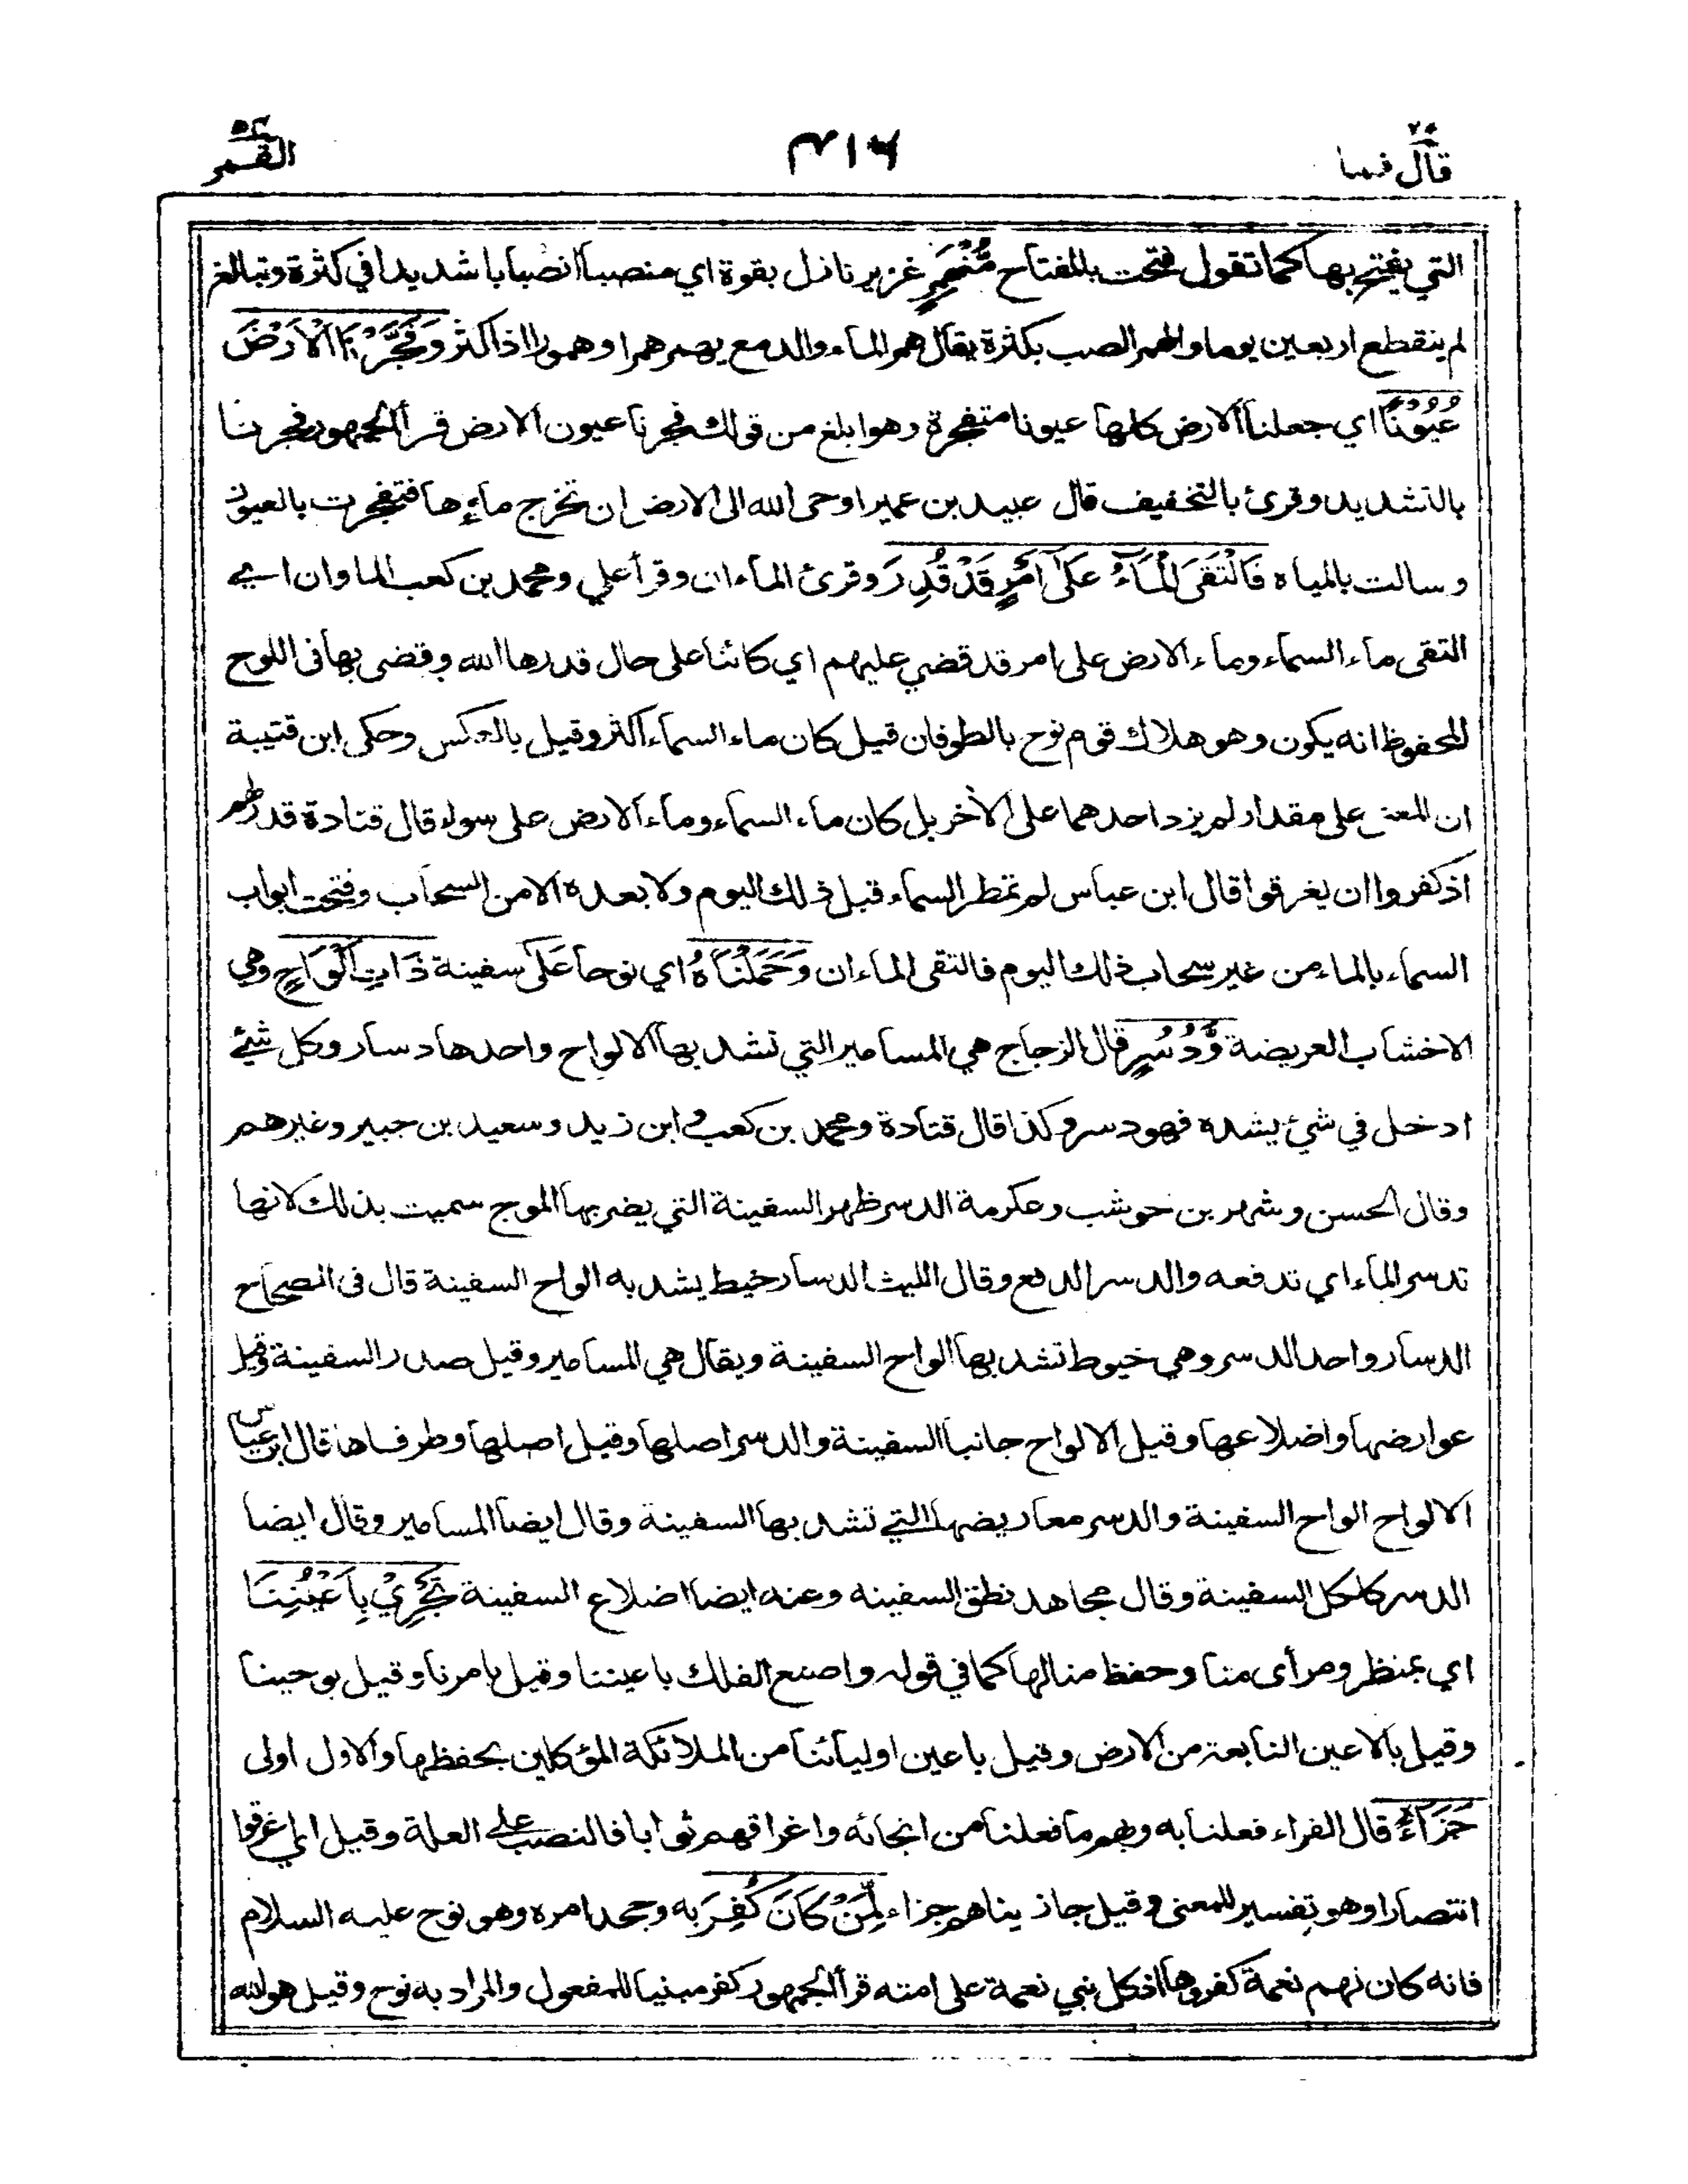 قال فما ٢٧
٣١٦
القمر ٥٤
التي يفتح بها كما تقول فتحت بالمفتاح مُّنْهَمِرٍ غزير نازل بقوة اي منصبا انصبابا شديدا في كثرة وتبالغ
لم ينقطع اربعين يوما والهمر الصب بكثرة يقال همر الماء والدمع يهمر همرا وهمورا اذا كثر وَفَجَّرْنَا الْاَرْضَ
عُيُوْنًا اي جعلنا الارض كلها عيونا متفجرة وهو ابلغ من قولك فجرنا عيون الارض قرأ الجمهور فجرنا
بالتشديد وقرئ بالتخفيف قال عبيد بن عمير اوحى الله الى الارض ان تخرج ماءها فتفجرت بالعيون
وسالت بالمياه فَالْتَقَى الْمَآءُ عَلٰٓى اَمْرٍ قَدْ قُدِرَ وقرئ الماءان وقرأ علي ومحمد بن كعب الماوان اي
التقى ماء السماء وماء الارض على امر قد قضي عليهم اي كائنا على حال قدرها الله وقضى بها فى اللوح
المحفوظ انه يكون وهو هلاك قوم نوح بالطوفان قيل كان ماء السماء اكثر وقيل بالعكس وحكى ابن قتيبة
ان المعنى على مقدار لم يزد احدهما على الأخر بل كان ماء السماء وماء الارض على سواء قال قتادة قدر لهم
اذ كفروا ان يغرقوا قال ابن عباس لم تمطر السماء قبل ذلك اليوم ولا بعده الا من السحاب وفتحت ابواب
السماء بالماء من غير سحاب ذلك اليوم فالتقى الماءان وَحَمَلْنَاهُ اي نوحا عَلٰى سفينة ذَاتِ اَلْوَاحٍ وهي
الاخشاب العريضة وَّدُسُرٍ قال الزجاج هي المسامير التي تشد بها الالواح واحدها دسار وكل شئ
ادخل في شئ يشده فهو دسر وكذا قال قتادة ومحمد بن كعب وابن زيد وسعيد بن جبير وغيرهم
وقال الحسن وشهر بن حوشب وعكرمة الدسر ظهر السفينة التي يضربها الموج سميت بذلك لانها
تدسر الماء اي تدفعه والدسر الدفع وقال الليث الدسار خيط يشد به الواح السفينة قال فى الصحاح
الدسار واحد الدسر وهي خيوط تشد بها الواح السفينة ويقال هي المسامير وقيل صدر السفينة وقيل
عوارضها واضلاعها وقيل الالواح جانبا السفينة والدسر اصلها وقيل اصلها وطرفاها قال ابن عباس
الالواح الواح السفينة والدسر معاريضها التي تشد بها السفينة وقال ايضا المسامير وقال ايضا
الدسر كلكل السفينة وقال مجاهد نطق السفينه وعنه ايضا اضلاع السفينة تَجْرِيْ بِاَعْيُنِنَا
اي بمنظر ومرأى منا وحفظ منا لها كما في قوله واصنع الفلك باعيننا وقيل بامرنا وقيل بوحينا
وقيل بالاعين النابعة من الارض وقيل باعين اوليائنا من الملائكة المؤكلين بحفظها والاول اولى
جَزَآءً قال الفراء فعلنا به وبهم ما فعلنا من انجائه واغراقهم ثوابا فالنصب على العلة وقيل اي اغرقوا
انتصارا وهو تفسير للمعنى وقيل جازيناهم جزاء لِّمَنْ كَانَ كُفِرَ به وجحد امره وهو نوح عليه السلام
فانه كان لهم نعمة كفروها اذ كل نبي نعمة على امته قرأ الجمهور كفر مبنيا للمفعول والمراد به نوح وقيل هو الله